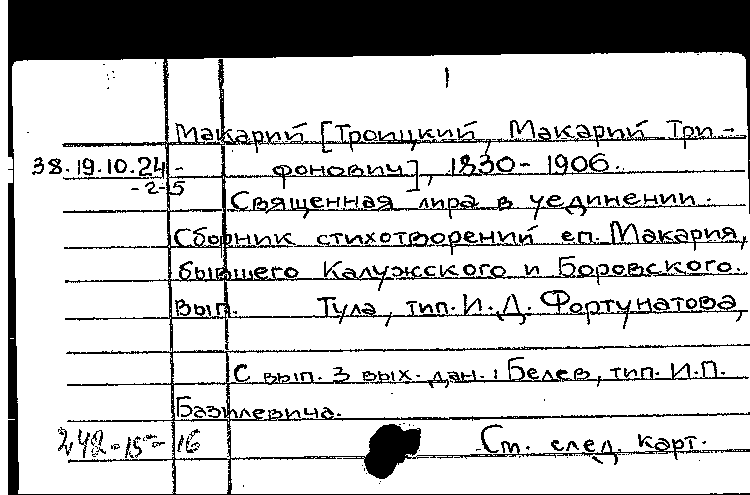 1
Макарий [Троицкий, Макарий Три-
38.19.10.24- фонович], 1830-1906.
-2-5
Священная лира в уединении.
Сборник стихотворений еп. Макария,
бывшего Калужского и Боровского.
Вып. Тула, тип. И. Д. Фортунатова,
С вып. 3 вых. дан.: Белев, тип. И.П.
Базилевича.
242-15-16 См. след. карт.